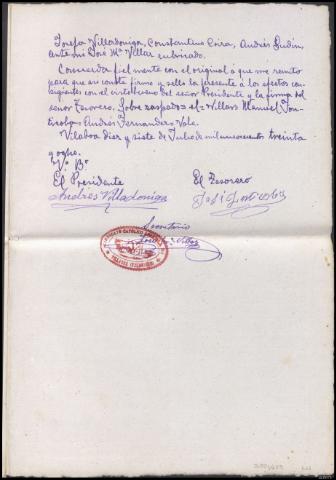 Josefa Villadoniga, Constantino Coira, Andrés Pudín,
ante mi José Mª Villar rubricado.
Concuerda fielmente con el original á que me remito
para que asi conste firmo y sello la presente a los efectos con-
siguientes con el visto bueno del señor Presidente y la firma del
señor Tesorero. Sobre raspado Villar Manuel
Andrés Fernandez Vale.
Vilaboa diez y siete de Julio de mil novecientos treinta
y ocho.
Vº Bº
El Presidente El Tesorero
Andres Villadoniga José
Secretario
SINDICATO CATOLICO